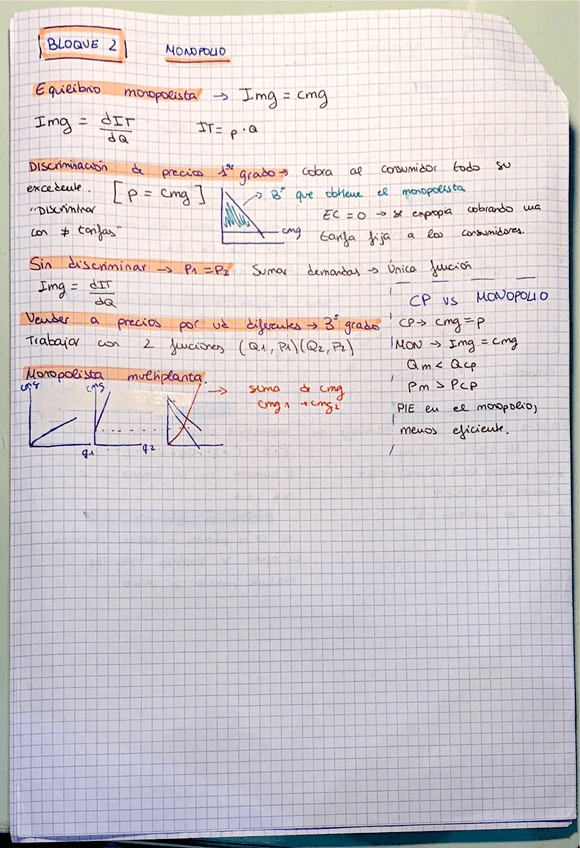 BLOQUE 2
MONOPOLIO
Equilibrio monopolista → Img = cmg
Img = dIT/dQ IT = p · Q
Discriminación de precios 1er grado → cobra al consumidor todo su
excedente. [p = cmg] → Bº que obtiene el monopolista
"Discriminar EC = 0 → se expropia cobrando una
con ≠ tarifas" cmg tarifa fija a los consumidores.
Sin discriminar → P1 = P2 Sumar demandas → Única función
Img = dIT/dQ
Vender a precios por ud diferentes → 3er grado
Trabajar con 2 funciones (Q1, P1) (Q2, P2)
Monopolista multiplanta.
→ suma de cmg
cmg1 + cmg2
q1 q2
CP VS MONOPOLIO
CP → cmg = p
MON → Img = cmg
Qm < Qcp
Pm > Pcp
PIE en el monopolio,
menos eficiente.